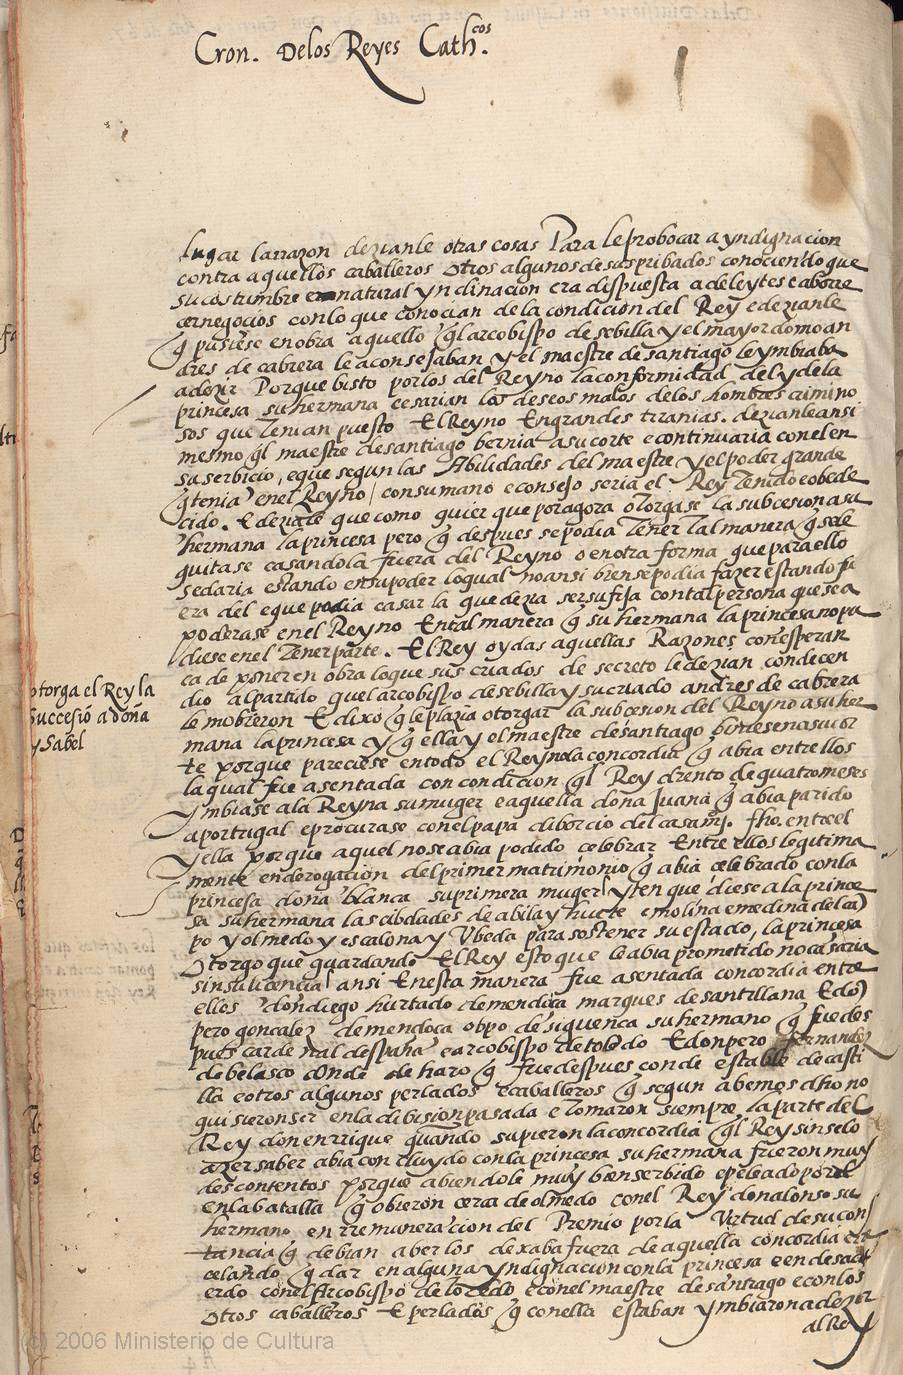 Cron. Delos Reyes Cath.cos
lugar larrazon dezianle otras cosas Para le probocar a yndignacion
contra aquellos caballeros otros algunos de sus pribados conociendo que
su costumbre e natural yndinacion era dispuesta a deleytes e aborre
cer negocios con lo que conocian de la condicion del Rey e dezianle
q pusiese en obra aquello ql arcobispo de sebilla y el mayordomo an
dres de cabrera le aconsejaban y el maestre de santiago le ymbiaba
a dezir Porque bisto por los del Reyno la conformidad del y de la
princesa su hermana cesarian los deseos malos de los hombres crimino
sos que tenian puesto El Reyno En grandes tiranias. dezianle ansi
mesmo ql maestre de santiago bernia a su corte e continuaria con el en
su serbicio, e que segun las Abilidades del maestre y el poder grande
q tenia en el Reyno / con su mano e consejo seria el Rey Tenido e obede
cido. E dezianle que como quier que por agora otorgase la subcesion a su
hermana la princesa pero q despues se podia Tener tal manera q se le
quitase casandola fuera del Reyno o en otra forma que para ello
se daria estando en su poder lo qual no ansi bien se podia fazer estando fu
era del e que podia casar la que dezia ser su fija con tal persona que se a
poderase en el Reyno En tal manera q su hermana la princesa no pu
diese en el Tener parte. El Rey oydas aquellas Razones con esperan
ca de poner en obra lo que sus criados de secreto le dezian condecen
dio al partido que el arcobispo de sebilla y su criado andres de cabrera
le mobieron E dixo q le plazia otorgar la subcesion del Reyno a su her
mana la princesa y q ella y el maestre de santiago biniesen a su cor
te porque pareciese en todo el Reyno la concordia q abia entre ellos
la qual fue asentada con condicion ql Rey dentro de quatro meses
ymbiase a la Reyna su muger e aquella doña Juana q abia parido
a portugal e procurase con el papa diborcio del casamj.º fho. entre el
y ella porque aquel no se abia podido celebrar Entre ellos legitima
mente en derogacion del primer matrimonio q abia celebrado con la
princesa doña blanca su primera muger / yten que diese a la prince
sa su hermana las cibdades de abila y huete e molina e medina del cam
po y olmedo y escalona y Ubeda para sostener su estado, la princesa
otorgo que guardando El Rey esto que le abia prometido no casaria
sin su licencia / ansi En esta manera fue asentada concordia entre
ellos don diego hurtado de mendoca marques de santillana E don
pero goncalez de mendoca obpo de siguenca su hermano q fue des
pues cardenal despaña e arcobispo de toledo E don pero fernandez
de belasco conde de haro q fue despues conde estable de casti
lla e otros algunos perlados e caballeros q segun abemos dho no
quisieron ser en la dibision pasada e Tomaron siempre la parte del
Rey don enrrique quando supieron la concordia ql Rey sin se lo
azer saber abia concluydo con la princesa su hermana fueron muy
descontentos porque abiendole muy bien serbido e peleado por el
en la batalla q obieron cerca de olmedo con el Rey don alonso su
hermano en rremuneracion del Premio por la Virtud de su cons
tancia q debian aber los dexaba fuera de aquella concordia rre
celando q dar en alguna yndignacion con la princesa e en desacu
erdo con el Arcobispo de toledo e con el maestre de santiago e con los
otros caballeros E perlados q con ella estaban ymbiaron a dezir
al Rey
otorga el Rey la
Succesió a doña
ysabel
(c) 2006 Ministerio de Cultura